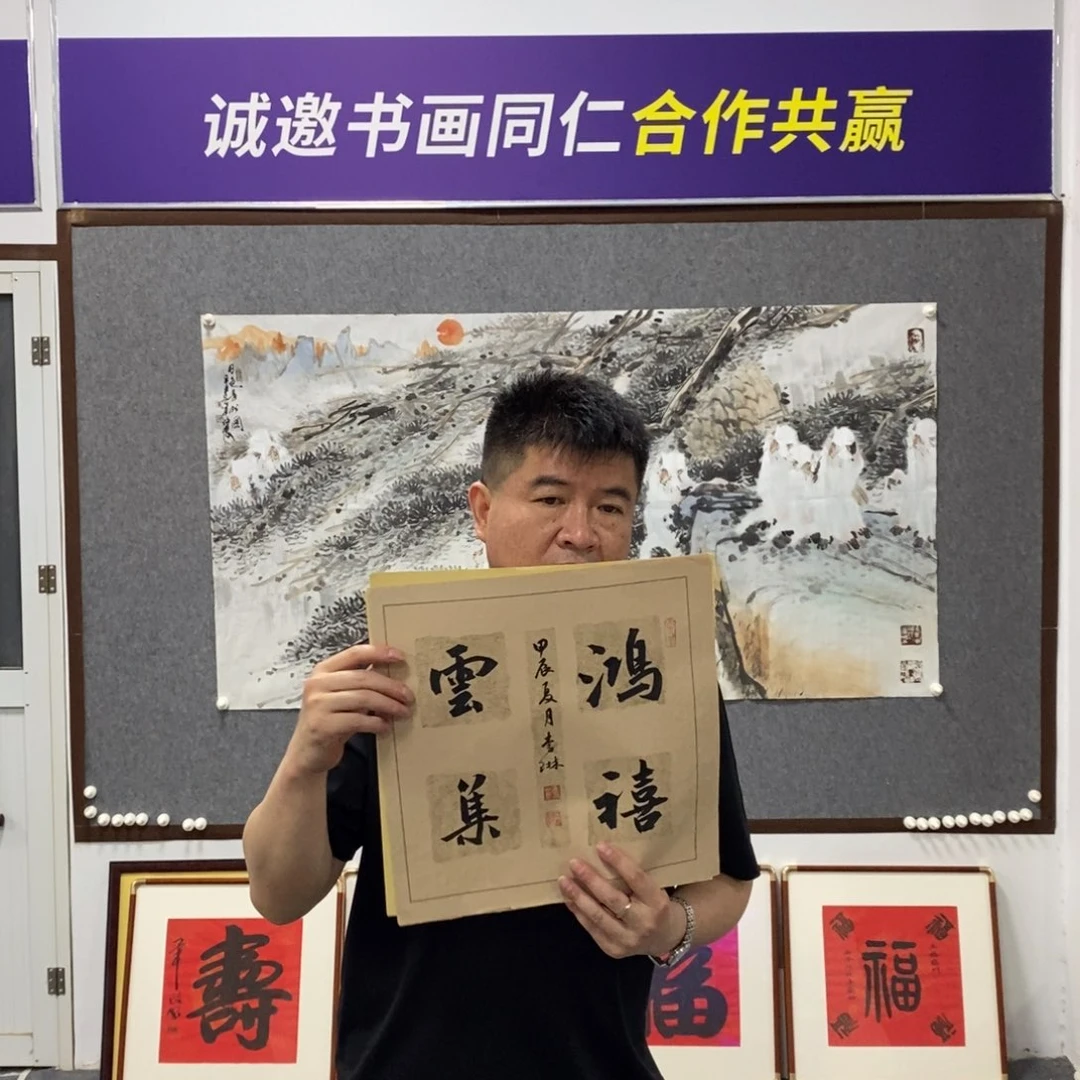 诚邀书画同仁合作共赢
鴻禧
雲集
甲辰夏月李琳
壽
福
福